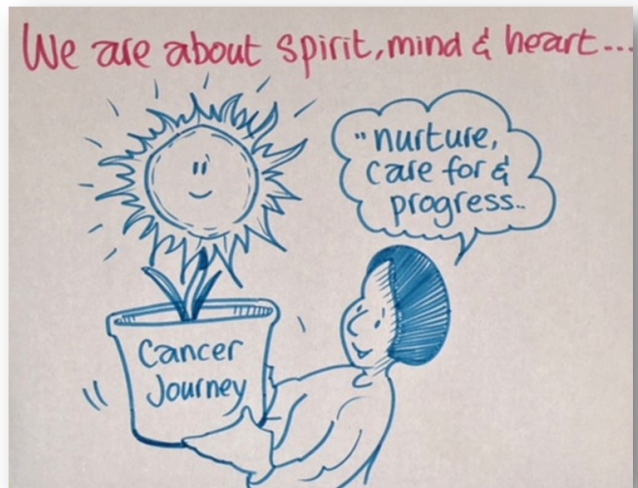 We are about spirit, mind & heart...
"nurture,
care for &
progress..
Cancer
Journey